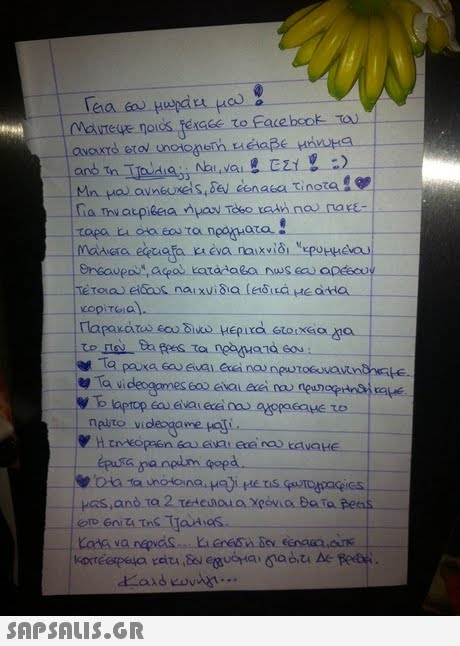 Γεια σου μωράκι μου!
Μάντεψε ποιός ξέχασε το Facebook του
ανοιχτό στον υπολογιστή κι έλαβε μήνυμα
από τη Τζούλια;; Ναι, ναι! ΕΣΥ! :)
Μη μου ανησυχείς, δεν έσπασα τίποτα!
Για την ακρίβεια ήμουν τόσο καλή που πακέ-
ταρα κι όλα σου τα πράγματα!
Μάλιστα έφτιαξα κι ένα παιχνίδι "κρυμμένου
θησαυρού", αφού κατάλαβα πως σου αρέσουν
τέτοιου είδους παιχνίδια (ειδικά με άλλα
κορίτσια).
Παρακάτω σου δίνω μερικά στοιχεία για
το πού θα βρεις τα πράγματά σου:
Τα ρούχα σου είναι εκεί που πρωτοσυναντηθήκαμε.
Τα videogames σου είναι εκεί που πρωτοφιληθήκαμε.
Το laptop σου είναι εκεί που αγοράσαμε το
πρώτο videogame μαζί.
Η τηλεόραση σου είναι εκεί που κάναμε
έρωτα για πρώτη φορά.
Όλα τα υπόλοιπα, μαζί με τις φωτογραφίες
μας, από τα 2 τελευταία χρόνια θα τα βρεις
στο σπίτι της Τζούλιας.
Καλά να περνάς... Κι επειδή δεν έσπασα, ούτε
κατέστρεψα κάτι, δεν εγγυώμαι για ό,τι ΔΕ βρεθεί.
Καλό κυνήγι...
SAPSALIS.GR